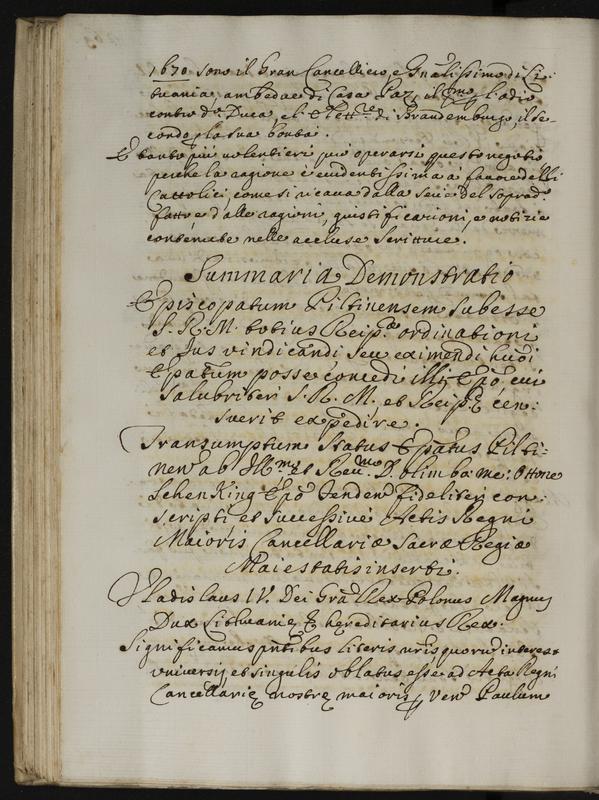 1670 sono il Gran Cancelliero, e Gn̄alissimo di Li:
tuania, ambedue di Casa Paz, il pm̄o p̱ l'odio
contro dᵒ Duca, el' Elettʳᵉ di Brandemburgo, il se:
condo p̱ la sua bontà.
E tanto più volentieri può operarsi questo negotio
perche la ragione è evidentissima à favore delli
Cattolici, come si ricava dalla serie del sopradᵒ
fatto e dalle ragioni, giustificationi, e notizie
contenute nelle accluse Scritture.
Summaria Demonstratio
Episcopatum Piltinensem subesse
S. R. M. totius Reip.ᶜᵃᵉ ordinationi
et Jus vindicandi seu eximendi hm̄oi
Ep̄atum posse concedi Illi Ep̄o, cui
salubriter S. R. M. et Reip.ę cen:
suerit expedire.
Transumptum Status Ep̄atus Pilti:
nen̄ ab Ill.ᵐᵒ et Reu.ᵐᵒ D. olim ba: me: Ottone
SchenKing Ep̄o Venden̄ fideliter con:
scripti et successive Actis Regni
Maioris Cancellariæ Sacræ Regiæ
Maiestatis inserti.
Vladislaus IV. Dei Grā Rex Poloniæ Magnus
Dux Lithuanię & hereditarius Rex.
Significamus pn̄tibus literis nr̄is quorum interest
universis et singulis oblatus esse ad Acta Regni
Cancellarię nostrę maioris p̱ Ven̄ Paulum